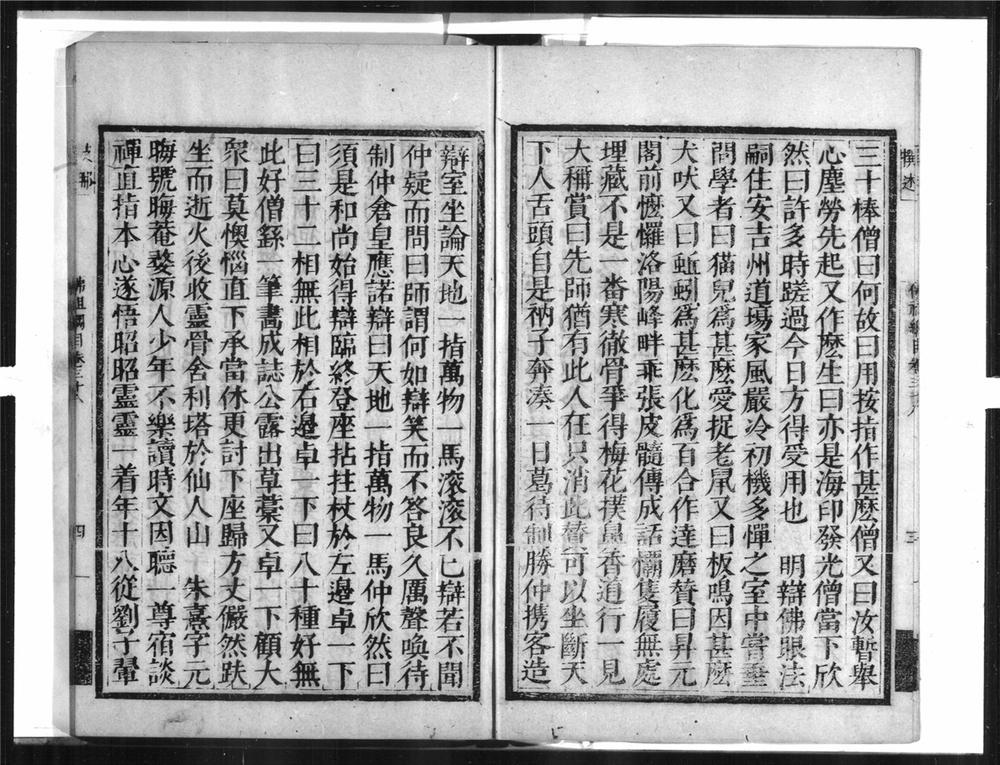 撰述
三十棒僧曰何故曰用按指作甚麽僧又曰汝暫舉
心塵勞先起又作麽生曰亦是海印發光僧當下欣
然曰許多時蹉過今日方得受用也　明辯佛眼法
嗣住安吉州道場家風嚴冷初機多憚之室中嘗垂
問學者曰猫兒爲甚麽愛捉老鼠又曰板鳴因甚麽
犬吠又曰蚯蚓爲甚麽化爲百合作達磨贊曰昇元
閣前懡㦬洛陽峰畔乖張皮髓傳成話欛隻履無處
埋藏不是一番寒徹骨爭得梅花撲鼻香道行一見
大稱賞曰先師猶有此人在只消此贊可以坐斷天
下人舌頭自是衲子奔湊一日葛待制勝仲携客造
佛祖綱目卷三十八
三
辯室坐論天地一指萬物一馬滚滚不已辯若不聞
仲疑而問曰師謂何如辯笑而不答良久厲聲喚待
制仲倉皇應諾辯曰天地一指萬物一馬仲欣然曰
須是和尚始得辯臨終登座拈拄杖於左邊卓一下
曰三十二相無此相於右邊卓一下曰八十種好無
此好僧繇一筆畫成誌公露出草藁又卓一下顧大
衆曰莫懊惱直下承當休更討下座歸方丈儼然趺
坐而逝火後收靈骨舍利塔於仙人山　朱熹字元
晦號晦菴婺源人少年不樂讀時文因聽一尊宿談
禪直指本心遂悟昭昭靈靈一着年十八從劉子翬
佛祖綱目卷三十八
四